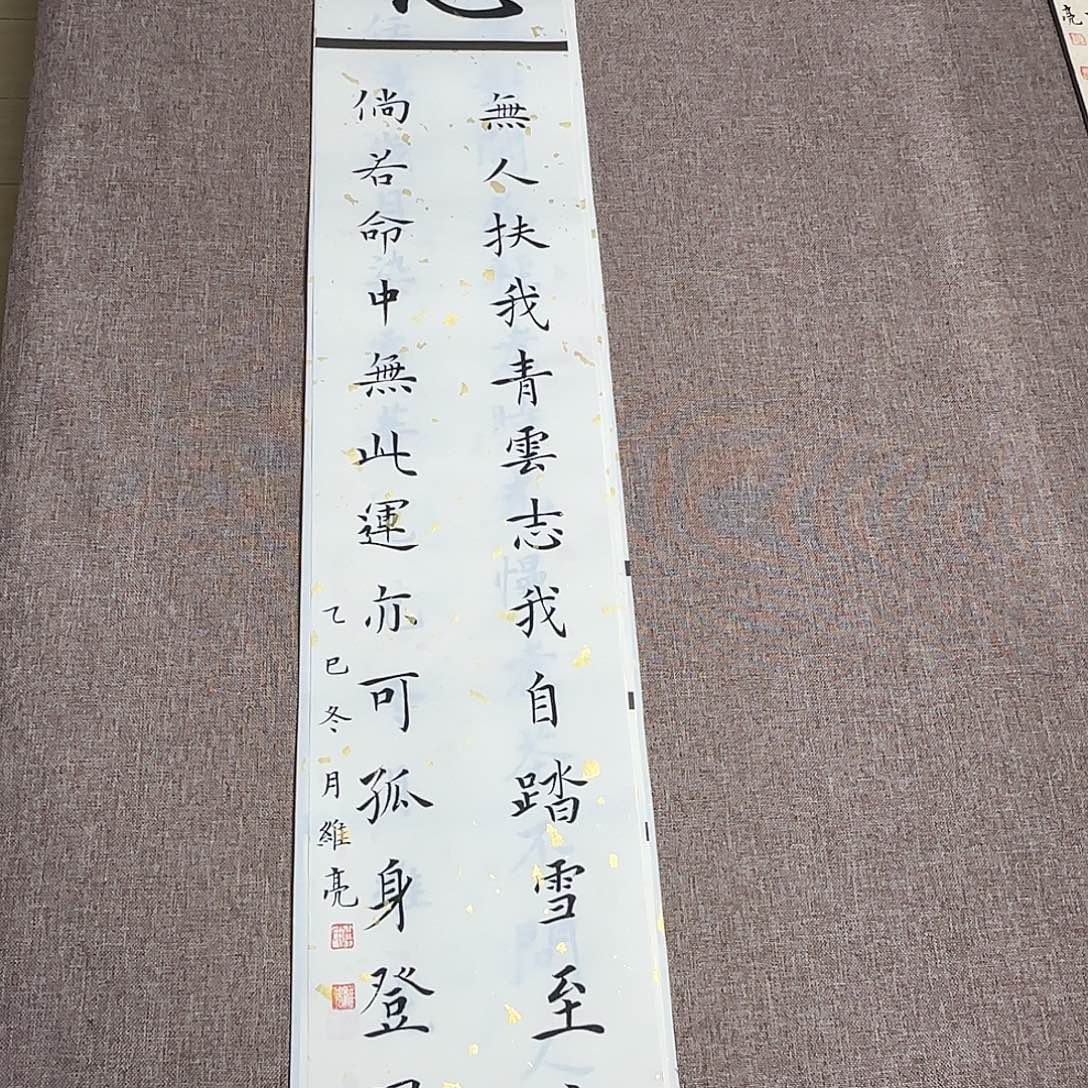 無人扶我青雲志我自踏雪至
倘若命中無此運亦可孤身登
乙巳冬月維亮
亮